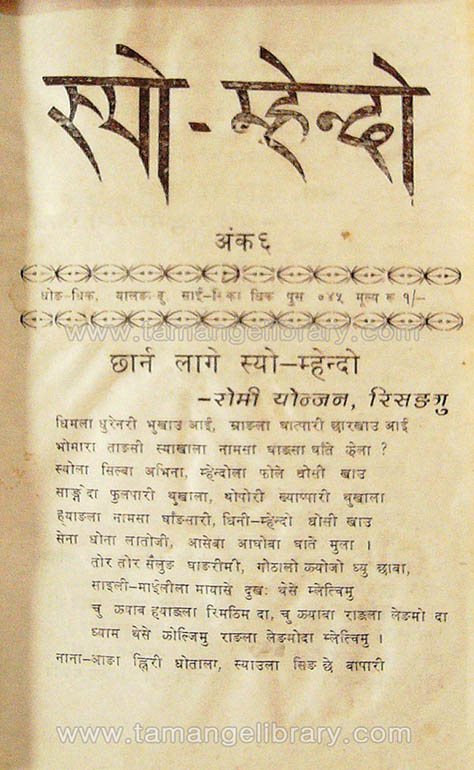 स्यो-म्हेन्दो
अंक ६
धोङ-धिक, पुस ०४५ मूल्य रु १/-
www.tamangelibrary.com
छार्न लागे स्यो-म्हेन्दो
-रोमी योन्जन, रिसङगु
धिमला धुरेनरी भुखाउ आई, म्राङला घात्पारी छारखाउ आई
भोमारा ताङसी स्याखाला नामसा घाङसा घाँते झेला ?
स्योला सिल्बा अभिना, म्हेन्दोला फोले थोसी खाउ
फुलपारी थुखाला, थोपोरी ख्याप्पारी थुखाला
ह्याङला नामसा घाँङसारी, धिनी-म्हेन्दो थोसी खाउ
सेना धोना लातोजी, आसेबा आघोबा घाते मुला ।
तोर तोर सैलुङ घाङरीमी, गोठालो कयोजो ध्यु छाबा,
साइली-माईलीला मायासे दुखः थेसे म्लेत्चिमु
चु कयाब ह्याङला रिमठिम दा, चु कयाबा राङला लेङमो दा
ध्याम थेसे कोल्जिमु राङला लेङमोदा म्लेत्चिमु ।
नाना-आङा ह्रिरी धोताला, स्याउला सिङ छे बापारी
www.tamangelibrary.com